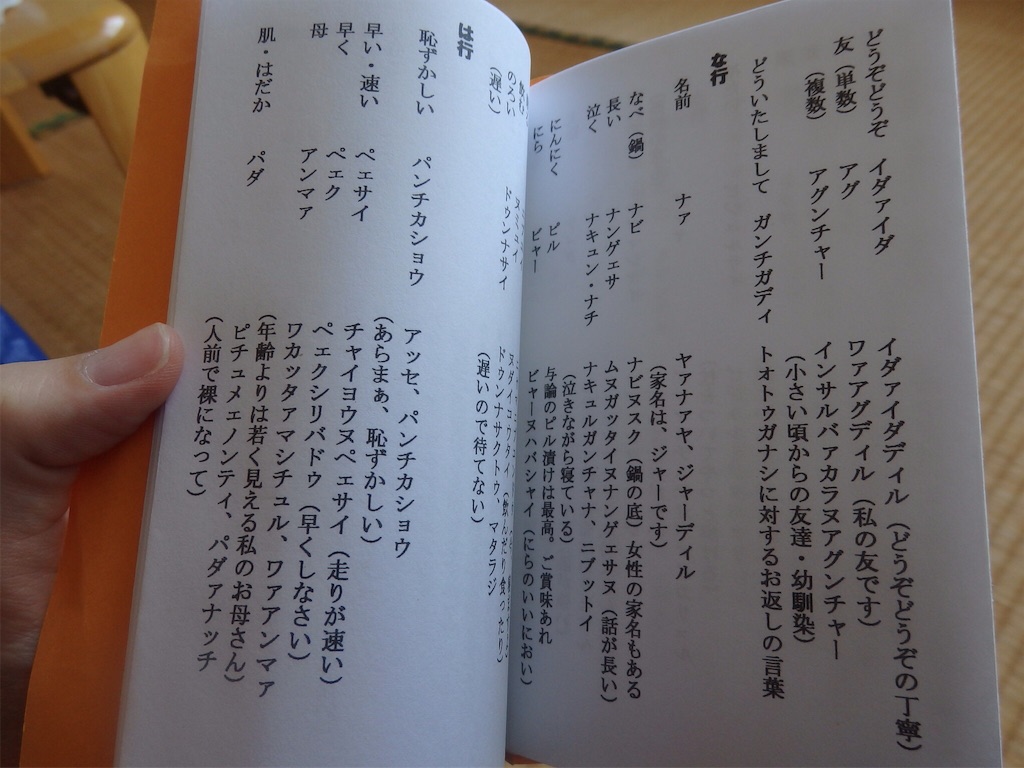 どうぞどうぞ　イダァイダ　イダァイダディル（どうぞどうぞの丁寧）
友（単数）　アグ　ワァアグディル（私の友です）
（複数）　アグンチャー　インサルバァカラヌアグンチャー
（小さい頃からの友達・幼馴染）
どういたしまして　ガンチガディ　トォトゥガナシに対するお返しの言葉
な行
名前　ナァ　ヤァナァヤ、ジャーディル
（家名は、ジャーです）
なべ（鍋）　ナビ　ナビヌスク（鍋の底）女性の家名もある
長い　ナンゲェサ　ムヌガッタイヌナンゲェサヌ（話が長い）
泣く　ナキュン・ナチ　ナキュルガンチャナ、ニブットイ
（泣きながら寝ている）
にんにく　ビル　与論のビル漬けは最高。ご賞味あれ
にら　ビャー　ビャーヌハバシャイ（にらのいいにおい）
のろい　ドゥンナサイ　ドゥンナサクトゥ、マタラジ
（遅い）　（遅いので待てない）
は行
恥ずかしい　パンチカショウ　アッセ、パンチカショウ
（あらまぁ、恥ずかしい）
早い・速い　ペェサイ　チャイヨウヌペェサイ（走りが速い）
早く　ペェク　ペェクシリバドゥ（早くしなさい）
母　アンマァ　ワカッタァマシチュル、ワァアンマァ
（年齢よりは若く見える私のお母さん）
肌・はだか　パダ　ピチュメェノンティ、パダァナッチ
（人前で裸になって）